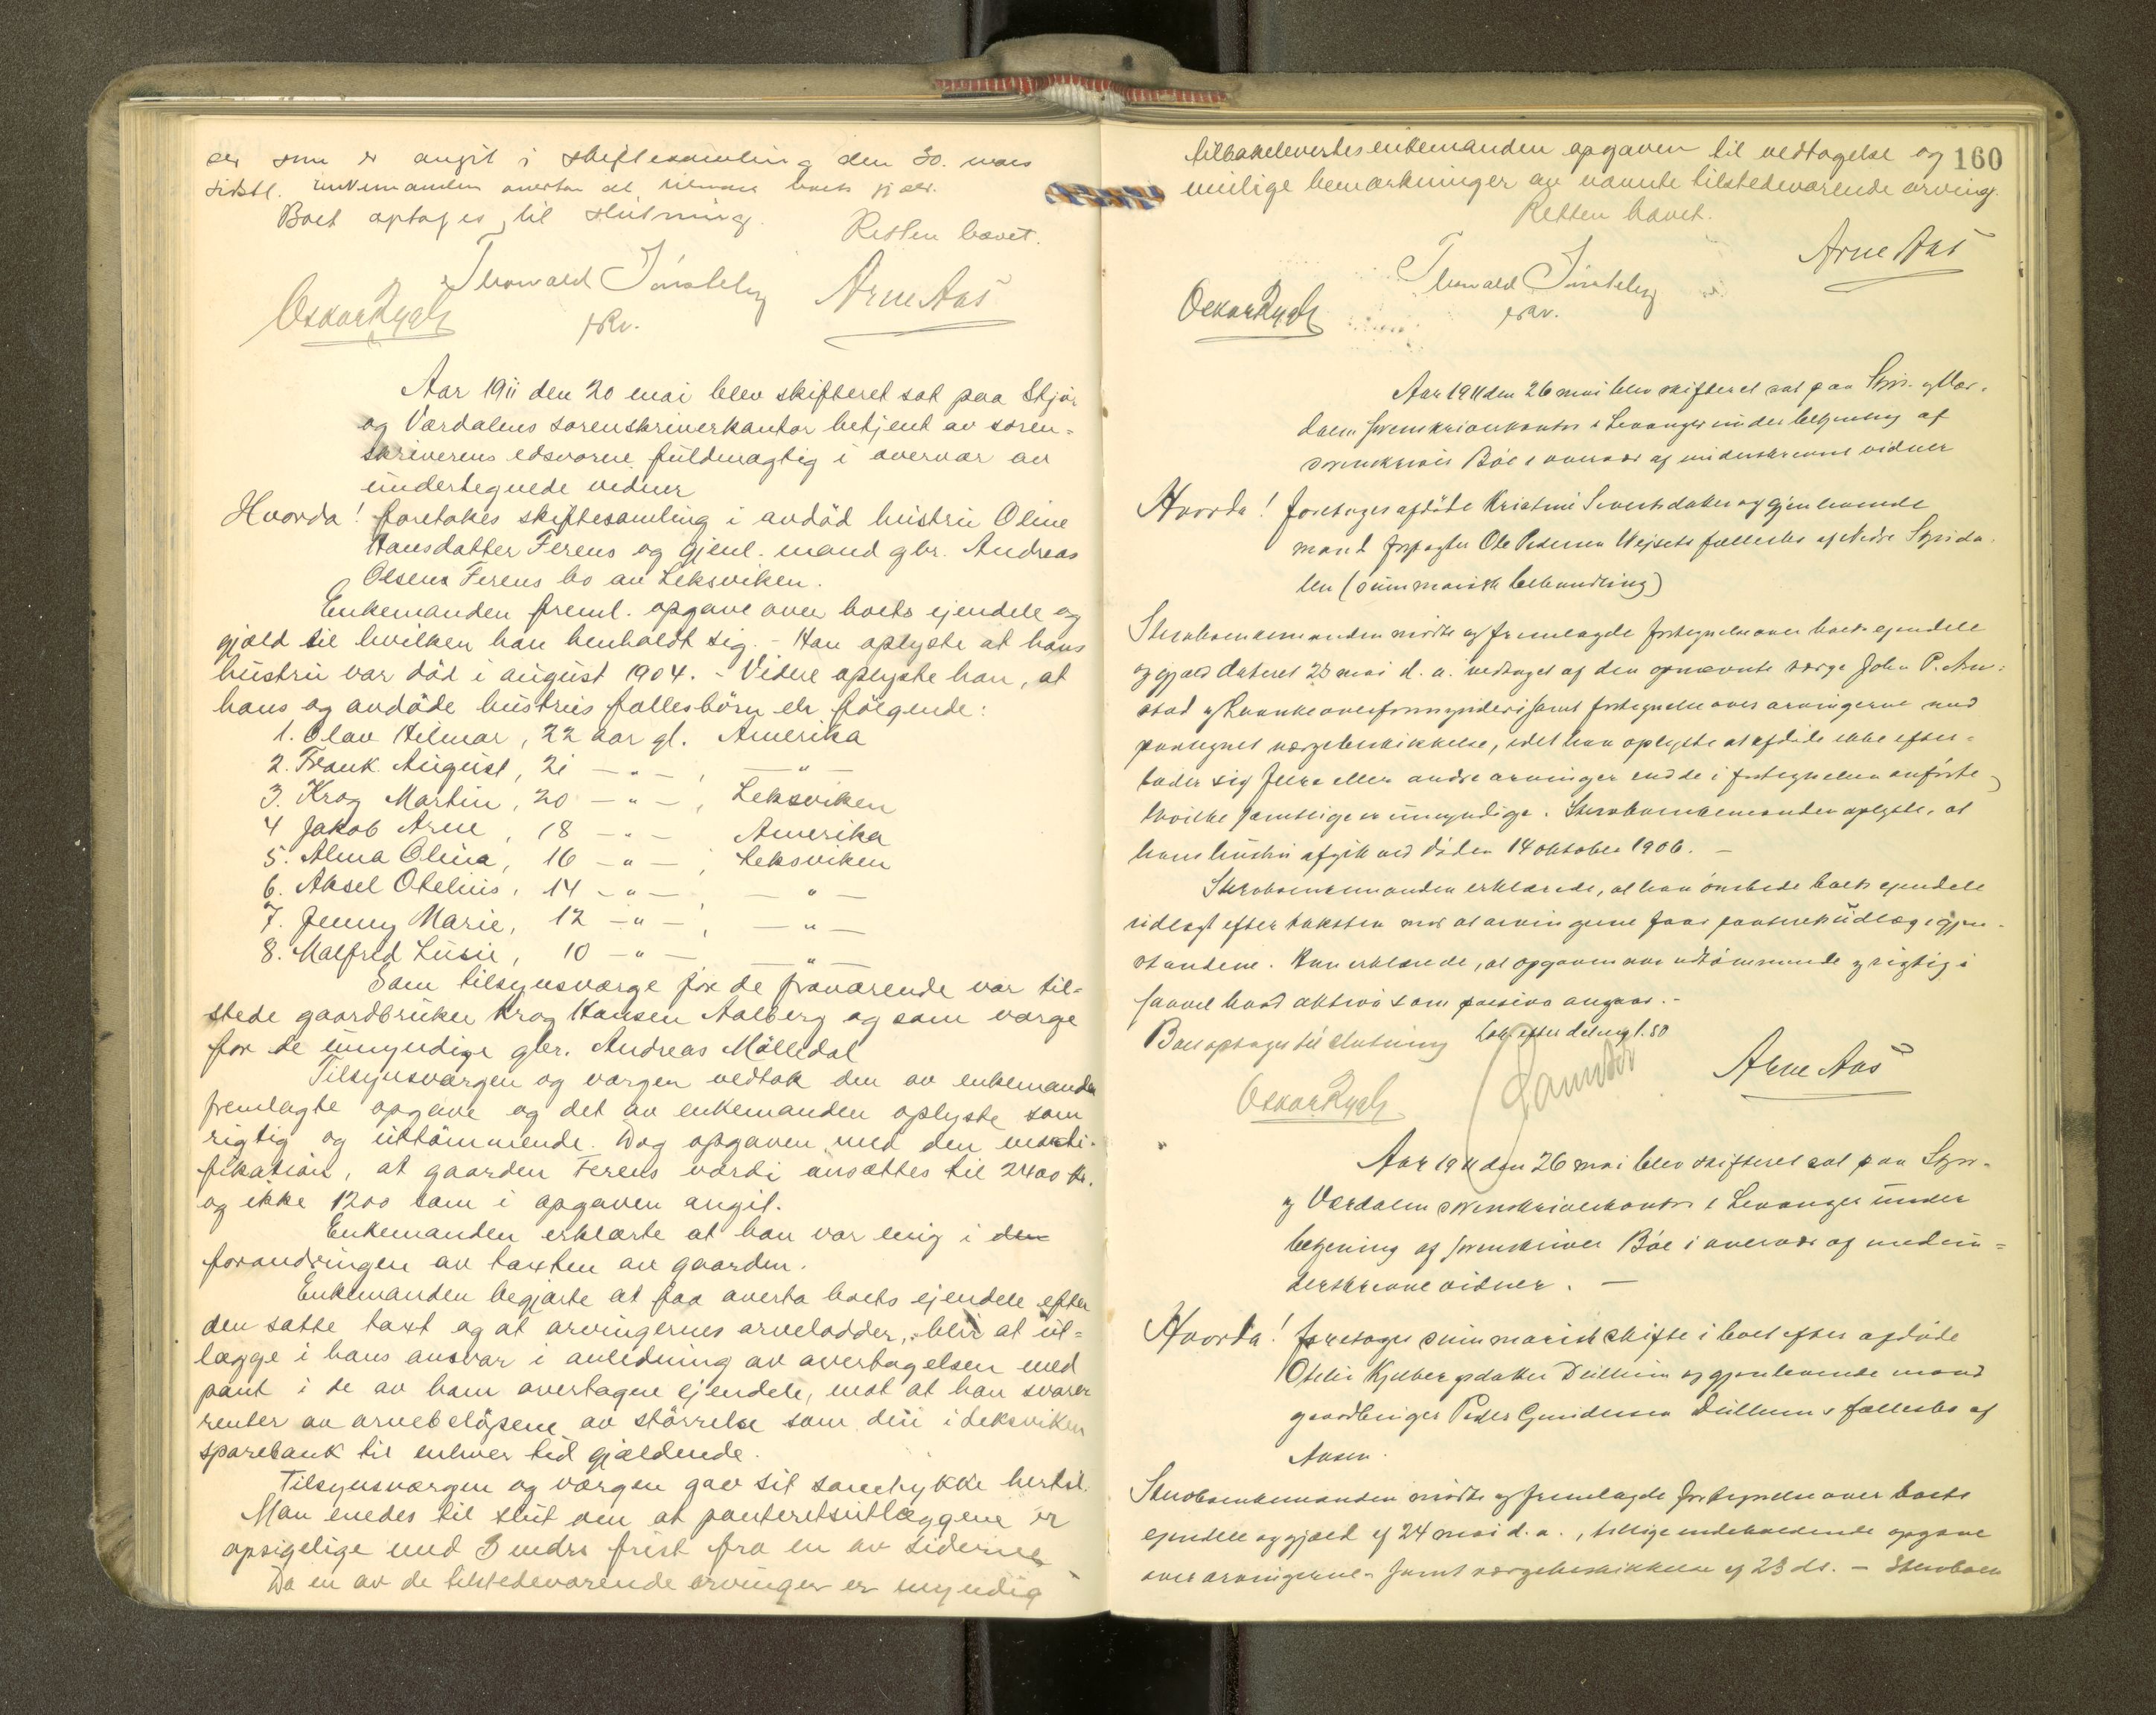 der som er angit i skiftesamling den 30. mars
sidstl. Enkemanden overtar at tilsvare boets gjæld.
Boet optages til slutning.
Retten hævet.
Thorvald
Oskar Rygh fkv. Arne Aas
Aar 1911 den 20 mai blev skifteret sat paa Stjør
og Værdalens sorenskriverkontor betjent av soren-
skriverens edsvorne fuldmægtig i overvær av
undertegnede vidner
Hvorda! foretokes skiftesamling i avdød hustru Oline
Hansdatter Ferens og gjenl. mand gbr. Andreas
Olsens Ferens bo av Leksviken.
Enkemanden freml. opgave over boets ejendele og
gjæld til hvilken han henholdt sig. - Han oplyste at hans
hustru var død i august 1904. - Videre oplyste han, at
hans og avdøde hustrus fællesbörn er følgende:
1. Olav Hilmar, 22 aar gl. Amerika
2. Frank August, 21 - " - , - " -
3. Krog Martin, 20 - " - , Leksviken
4 Jakob Arne, 18 - " - Amerika
5. Alma Olina, 16 - " - , Leksviken
6. Aksel Otelius, 14 - " - - " -
7. Jenny Marie, 12 - " - , - " -
8. Malfred Lusie, 10 - " - - " -
Som tilsynsværge for de fraværende var til-
stede gaardbruker Krog Hansen Aalberg og som værge
for de umyndige gbr. Andreas Mölledal
Tilsynsværgen og værgen vedtok den av enkemanden
fremlagte opgave og det av enkemanden oplyste som
rigtig og uttömmende. Dog opgaven med den modi-
fikation, at gaarden Ferens værdi ansættes til 2400 kr.
og ikke 1200 som i opgaven angit.
Enkemanden erklærte at han var enig i den
forandringen av taxten av gaarden.
Enkemanden begjærte at faa overta boets ejendele efter
den satte taxt og at arvingernes arvelodder, blir at ut-
lægge i hans ansvar i anledning av overtagelsen med
pant i de av ham overtagne ejendele, mot at han svarer
renter av arvebeløpene av størrelse som den i Leksviken
sparebank til enhver tid gjældende.
Tilsynsværgen og værgen gav sit samtykke hertil.
Man enedes til slut om at panteretsutlæggene er
opsigelige med 3 mdrs frist fra en av siderne
Da en av de tilstedeværende arvinger er myndig
160
tilbakelevertes enkemanden opgaven til vedtagelse og
mulige bemærkninger av nævnte tilstedeværende arving.
Retten hævet.
Thorvald
Oskar Rygh fkv. Arne Aas
Aar 1911 den 26 mai blev skifteret sat paa Stjør. og Vær-
dalens sorenskriverkontor i Levanger under betjening af
sorenskriver Böe i overvær af underskrevne vidner
Hvorda! foretoges afdöde Kristine Sivertsdatter og gjenlevende
mand forpagter Ole Pedersen Wejsets fællesbo af Nedre Stjørda-
len (summarisk behandling)
Stervboenkemanden mödte og fremlagde fortegnelse over boets ejendele
og gjæld dateret 23 mai d. a. vedtaget af den opnævnte værge John P.
stad og Laanke overformynderi samt fortegnelse over arvingerne med
paategnet værgebeskikkelse, idet han oplyste at afdöde ikke efter-
lader sig flere eller andre arvinger end de i fortegnelsen anförte,
hvilke samtlige er umyndige. Stervboenkemanden oplyste, at
hans hustru afgik ved döden 14 oktober 1906. -
Stervboenkemanden erklærede, at han önskede boets ejendele
udlagt efter taksten mod at arvingerne faar panteretsudlæg i gjen-
standene. Han erklærede, at opgaven var udtömmende og rigtig i
saavel hvad aktiva som passiva angaar. -
Boet optages til slutning Lok. efter deling 1.50
Oskar Rygh Arne Aas
Aar 1911 den 26 mai blev skifteret sat paa Stjør-
og Værdalens sorenskriverkontor i Levanger under
betjening af sorenskriver Böe i overvær af medun-
derskrevne vidner. -
Hvorda! foretoges summarisk skifte i boet efter afdöde
Otelie Kjelbergsdatter Dullum og gjenlevende mand
gaardbruger Peder Gundersen Dullums fællesbo af
Aasen.
Stervboenkemanden mödte og fremlagde fortegnelse over boets
ejendele og gjæld af 24 mai d. a., tillige indeholdende opgave
over arvingerne - samt værgebeskikkelse af 23 ds. - Stervboen